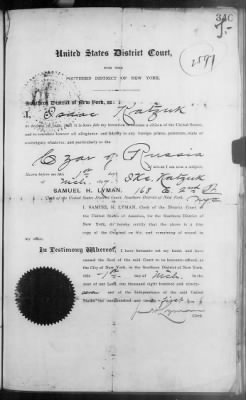 340
2591
United States District Court,
FOR THE
SOUTHERN DISTRICT OF NEW YORK.
Southern District of New York, ss:
I, Isaac Katzuk
do declare on oath, that it is bona fide my intention to become a citizen of the United States,
and to renounce forever all allegiance and fidelity to any foreign prince, potentate, state or
sovereignty whatever, and particularly to the
Czar of Russia
of whom I am now a subject.
Sworn before me this 1st
day of Mch.
SAMUEL H. LYMAN, 168 E. 2nd St
Clerk of the United States District Court, Southern District of New York. NYC
I, SAMUEL H. LYMAN, Clerk of the District Court of
the United States of America, for the Southern District
of New York, do hereby certify that the above is a true
copy of the Original on file and remaining of record in
my office.
In Testimony Whereof, I have hereunto set my hand and have
caused the Seal of the said Court to be hereunto affixed, at
the City of New York, in the Southern District of New York,
this 1st day of Mch. in the
year of our Lord, one thousand eight hundred and ninety-
and of the Independence of the said United
States the one hundred and
Lyman
Clerk.